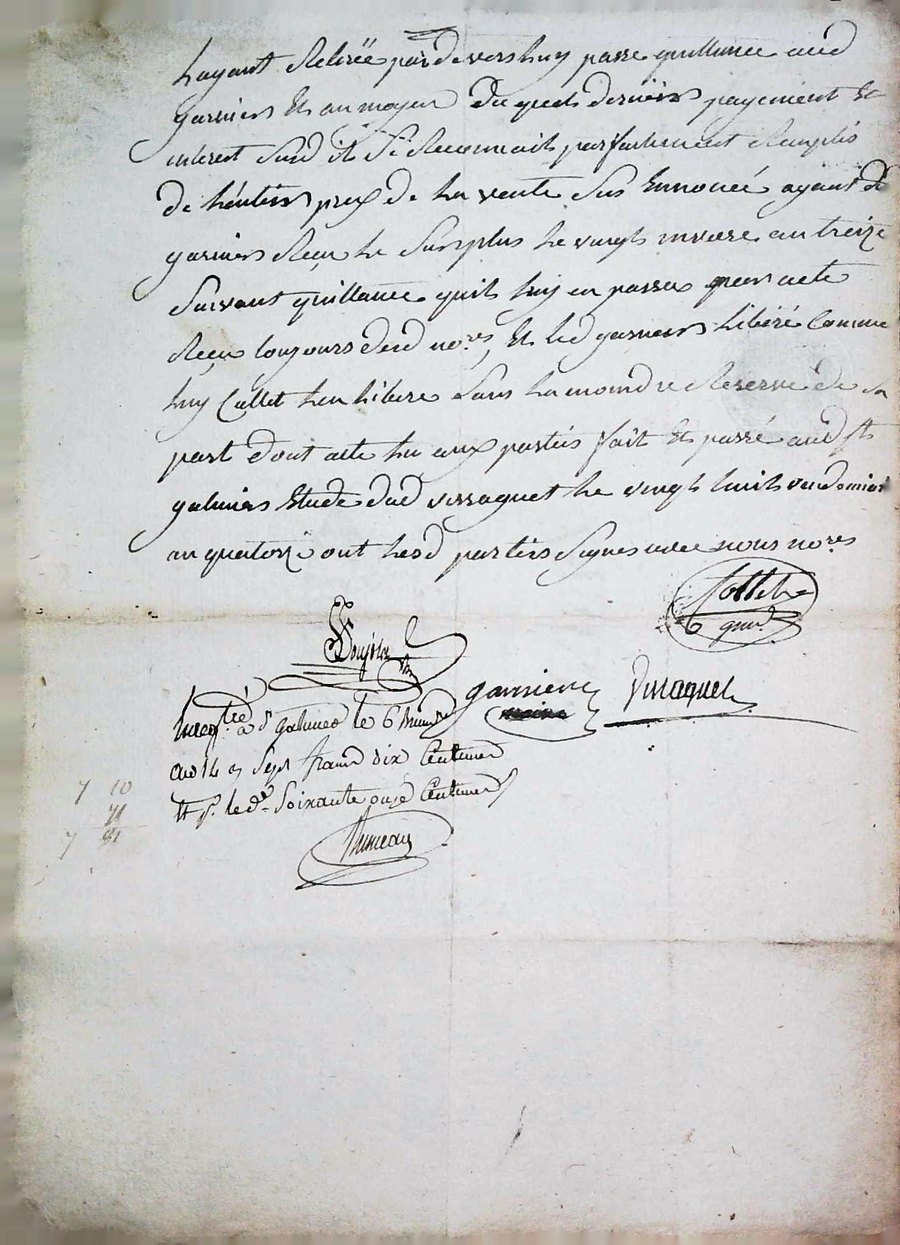 Layant Retirée par devers luy passe quittance aud
garnier Et au moyen Du quels derniers payement Et
interest Sus d it Se Reconnait parfaitement Remplis
de Lentier prix de La vente Sus Ennoncé ayant
garnier Reçu Le Surplus Le vingt nivose an treize
Suivant quittance quil luy en passa par acte
Reçu toujours desd no.res Et led garnier Libéré Comme
luy Collet Len Libere Sans La moindre Reserve de sa
part dont acte Lu aux parties fait Et passé aud St
galmier Etude dud verraquet Le vingt huit vendemiai
an quatorze ont Lesd parties Signés avec nous no.res
garnier
Verraquet
Enreg.tré à St galmier le 6 Brum.re
an 14 Sept franc dix Centimes
le d.e Soixante onze Centimes
7 10
71
7 81